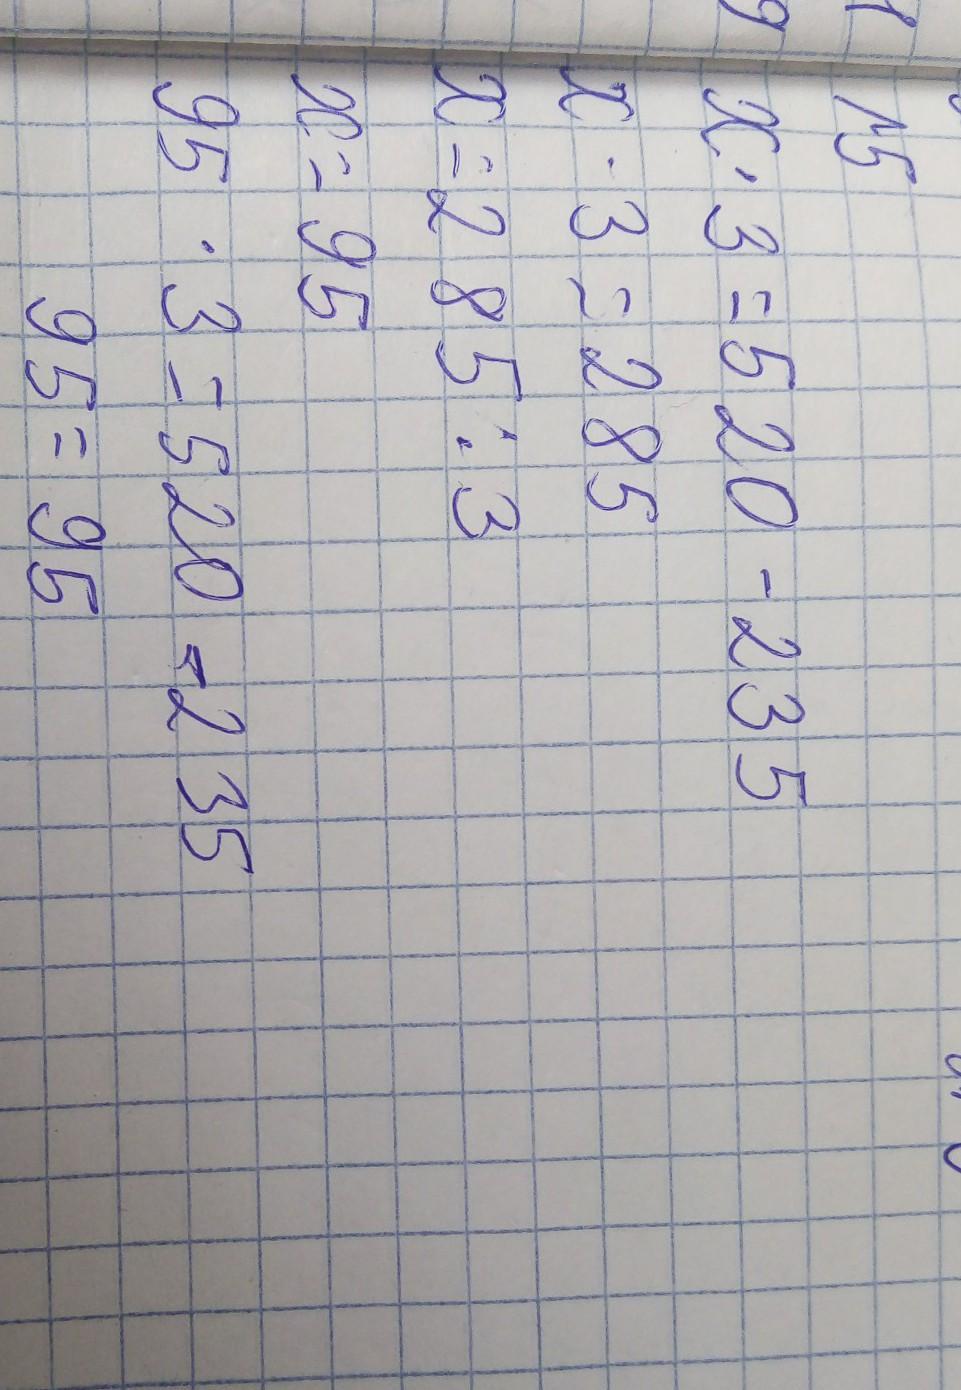 15
x · 3 = 520 - 235
x · 3 = 285
x = 285 : 3
x = 95
95 · 3 = 520 - 235
95 = 95